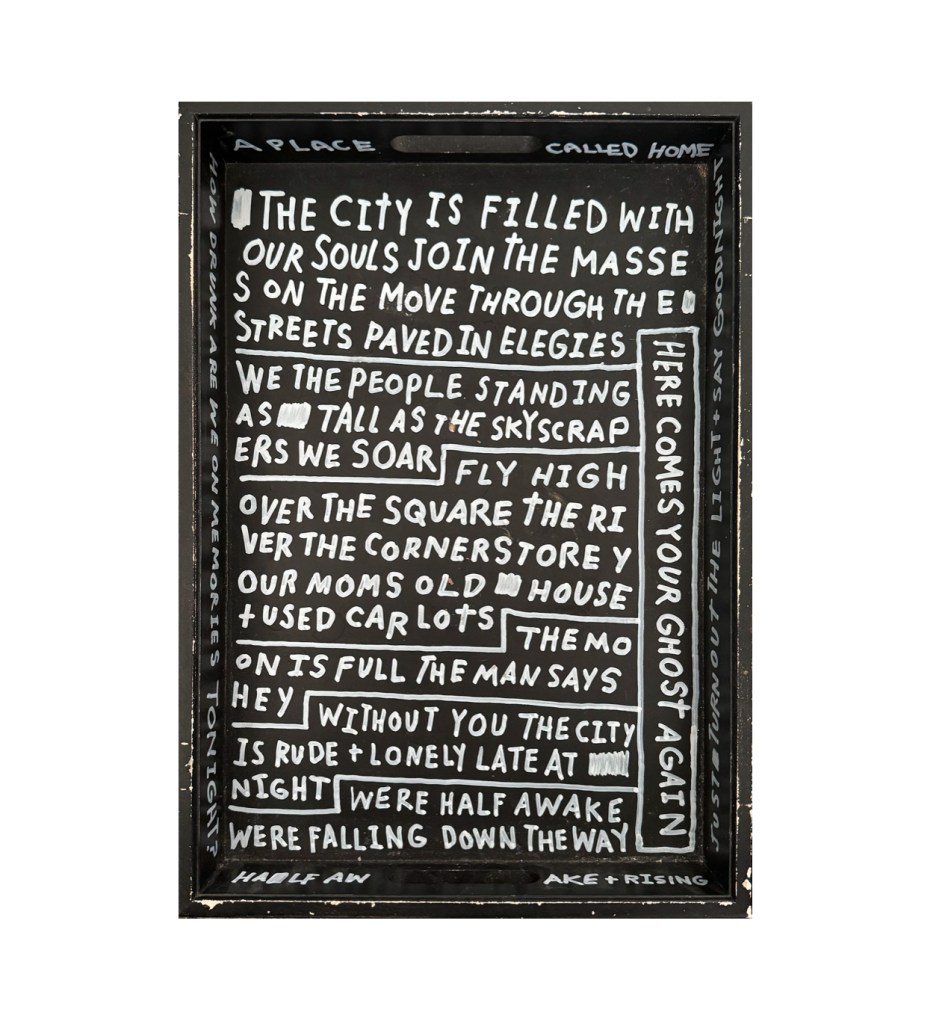 A PLACE CALLED HOME
HOW DRUNK ARE WE ON MEMORIES TONIGHT?
THE CITY IS FILLED WITH
OUR SOULS JOIN THE MASSE
S ON THE MOVE THROUGH THE
STREETS PAVED IN ELEGIES
WE THE PEOPLE STANDING
AS TALL AS THE SKYSCRAP
ERS WE SOAR FLY HIGH
OVER THE SQUARE THE RI
VER THE CORNERSTORE Y
OUR MOMS OLD HOUSE
+ USED CAR LOTS THE MO
ON IS FULL THE MAN SAYS
HEY WITHOUT YOU THE CITY
IS RUDE + LONELY LATE AT
NIGHT WERE HALF AWAKE
WERE FALLING DOWN THE WAY
HERE COMES YOUR GHOST AGAIN
JUST TURN OUT THE LIGHT + SAY GOODNIGHT
HALF AW AKE + RISING